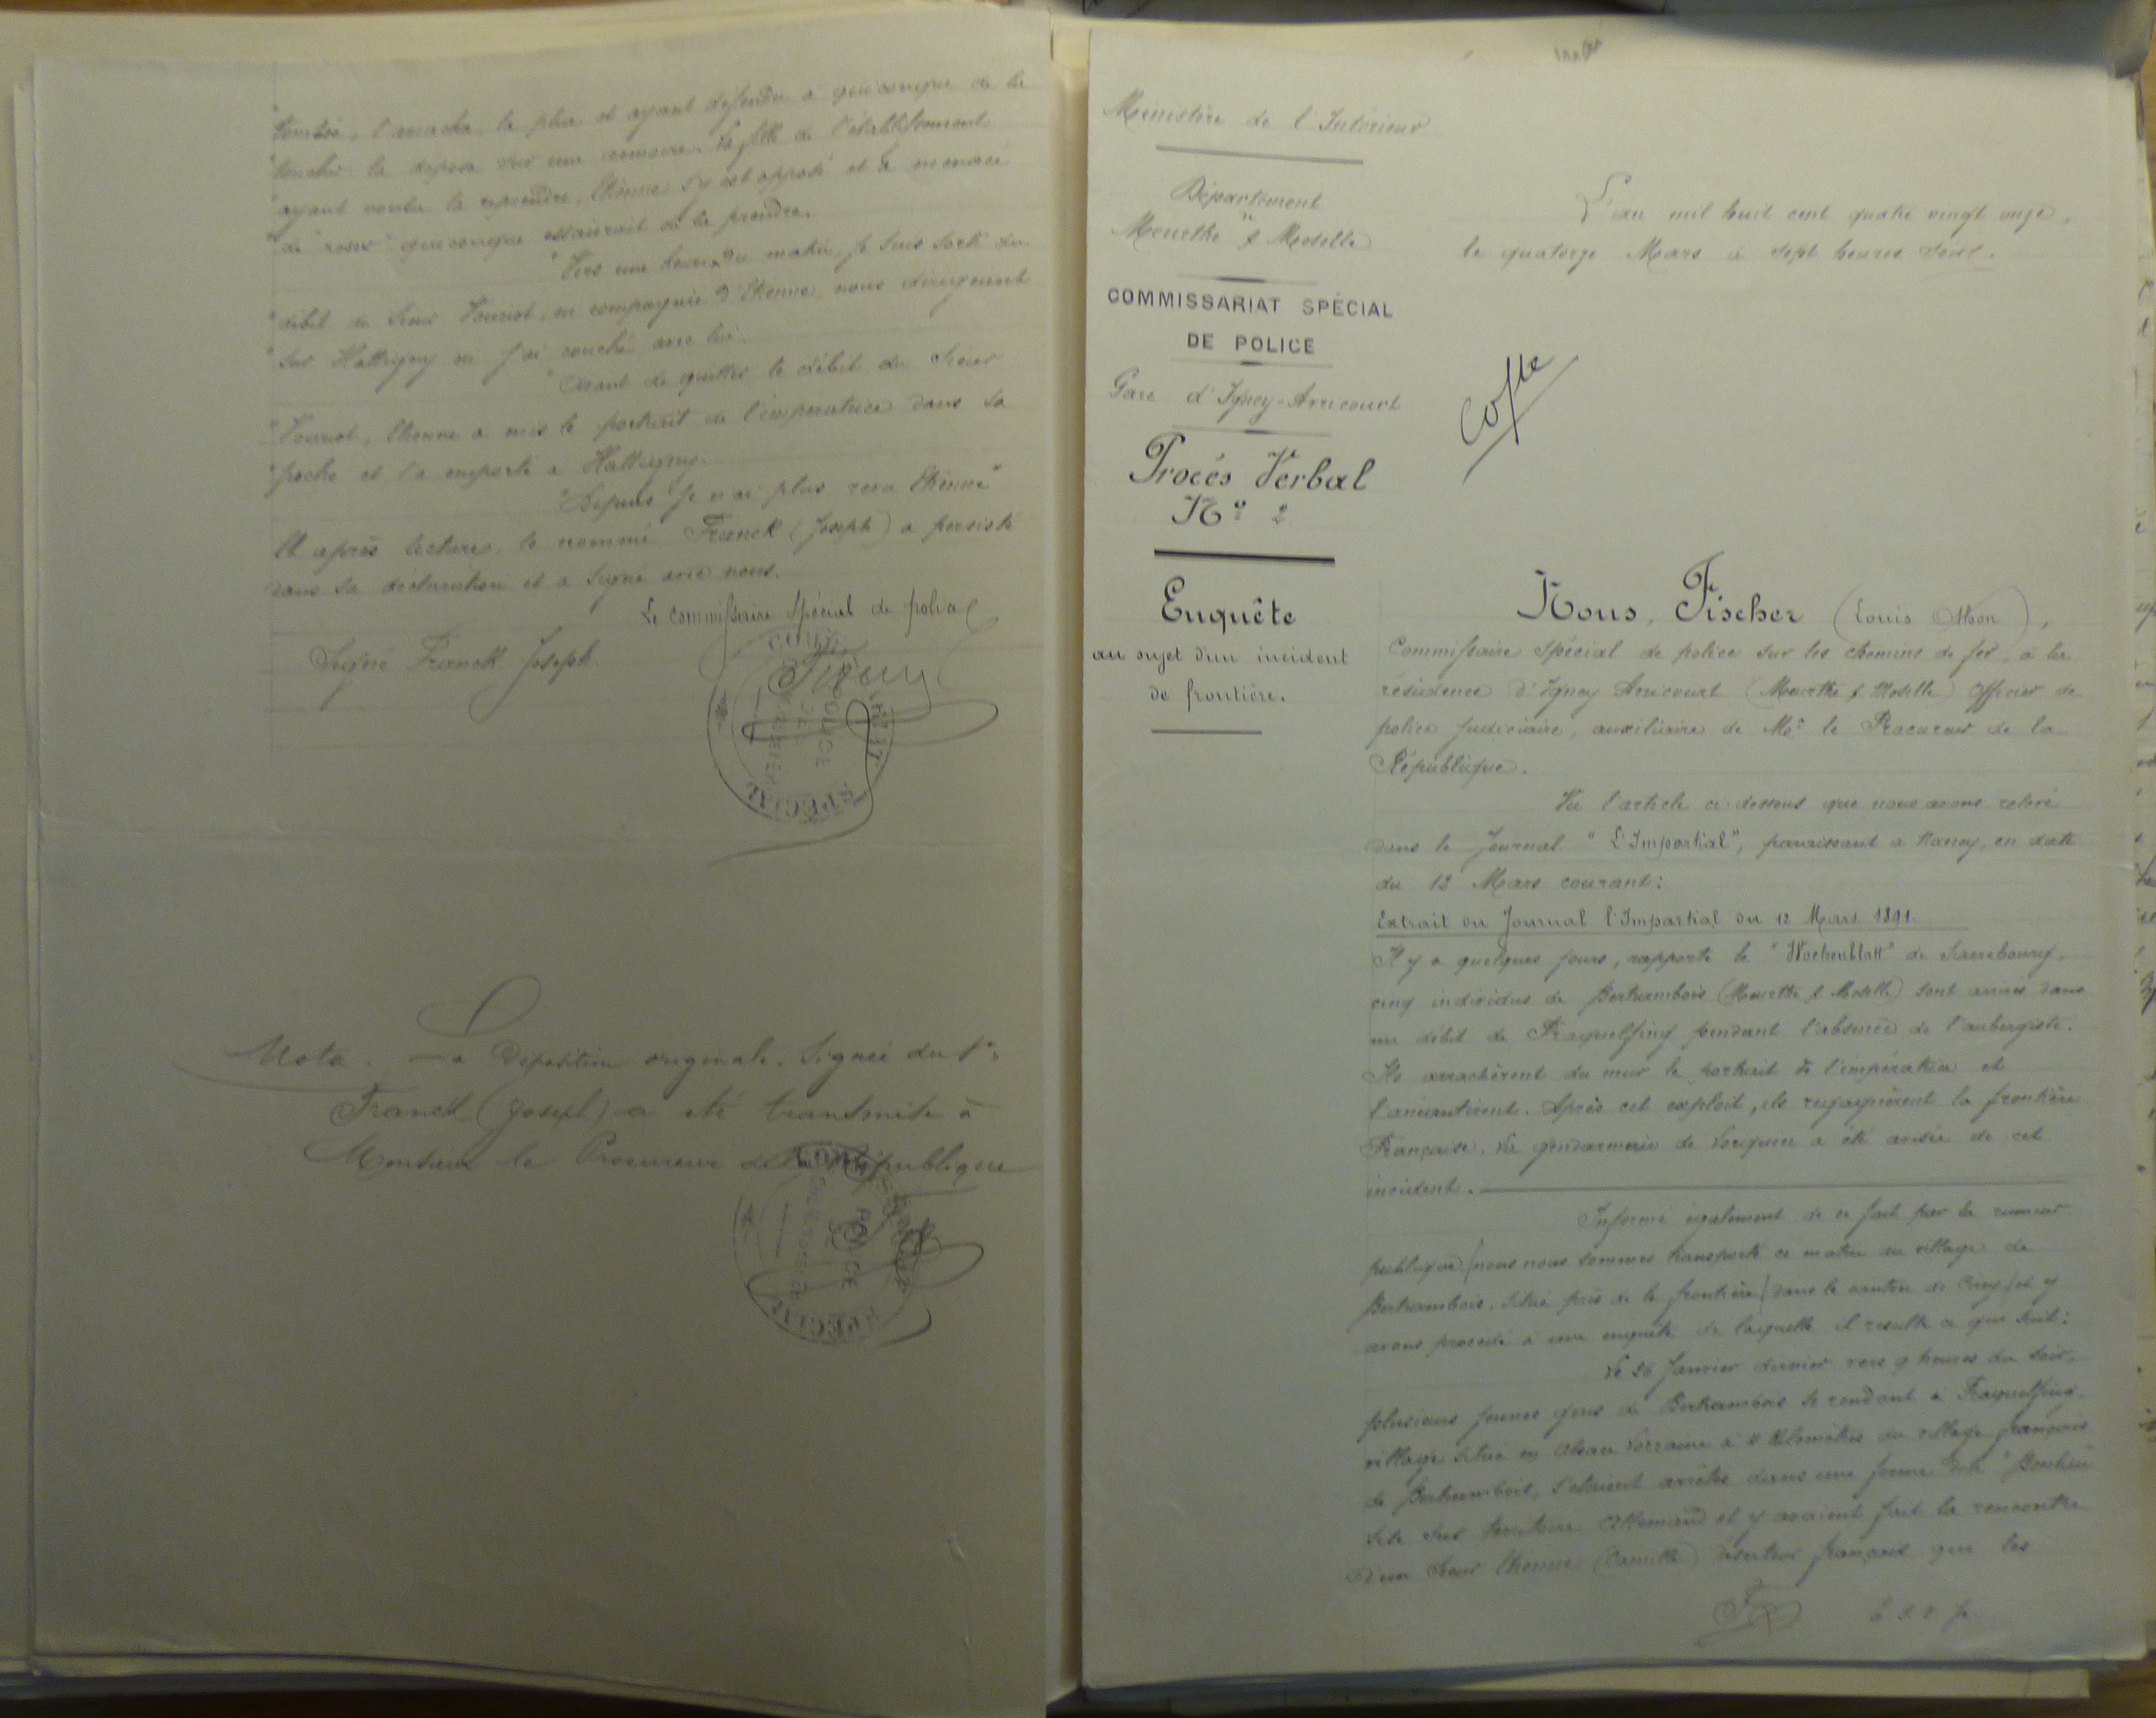 "tombée, l'arracha, la plia et ayant défendu à quiconque de la
"toucher la déposa sur une armoire. La fille de l'établissement
"ayant voulu la reprendre, Etienne s'y est opposé et a menacé
"de "rosser" quiconque essaierait de la prendre.
"Vers une heure du matin, je suis sorti du
"débit du Sieur Vouriot, en compagnie d'Etienne, nous dirigeant
"sur Hattigny où j'ai couché avec lui.
"Avant de quitter le débit du Sieur
"Vouriot, Etienne a mis le portrait de l'impératrice dans sa
"poche et l'a emporté à Hattigny.
"Depuis je n'ai plus revu Etienne"
Et après lecture, le nommé Franck (Joseph) a persisté
dans sa déclaration et a signé avec nous.
Le commissaire spécial de police
Signé Franck Joseph
COMMISSARIAT SPÉCIAL
DE POLICE
Nota. La Déposition originale. Signée du Sr
Franck (Joseph) a été transmise à
Monsieur le Procureur de la République
COMMISSARIAT SPÉCIAL
DE POLICE
Ministère de l'Intérieur
Département
Meurthe & Moselle
COMMISSARIAT SPÉCIAL
DE POLICE
Gare d'Igney-Avricourt
Procès Verbal
No 2
Enquête
au sujet d'un incident
de frontière.
L'an mil huit cent quatre vingt onze,
le quatorze Mars à sept heures soir.
Copie
Nous, Fischer (Louis Othon),
Commissaire Spécial de police sur les chemins de fer, à la
résidence d'Igney Avricourt (Meurthe & Moselle) Officier de
police judiciaire, auxiliaire de Mr le Procureur de la
République.
Vu l'article ci-dessous que nous avons relevé
dans le Journal "L'Impartial", paraissant à Nancy, en date
du 12 Mars courant:
Extrait du Journal l'Impartial du 12 Mars 1891.
Il y a quelques jours, rapporte le "Wochenblatt" de Sarrebourg,
cinq individus de Bertrambois (Meurthe & Moselle) sont arrivés dans
un débit de Fraquelfing pendant l'absence de l'aubergiste.
Ils arrachèrent du mur le portrait de l'impératrice et
l'anéantirent. Après cet exploit, ils regagnèrent la frontière
Française. La gendarmerie de Lorquin a été avisée de cet
incident.
Informé également de ce fait par la rumeur
publique, nous nous sommes transporté ce matin au village de
Bertrambois, situé près de la frontière (dans le canton de Cirey) et y
avons procédé à une enquête de laquelle il résulte ce qui suit:
Le 26 Janvier dernier vers 9 heures du soir,
plusieurs jeunes gens de Bertrambois se rendant à Fraquelfing,
village situé en Alsace Lorraine à 4 Kilomètres du village français
de Bertrambois, s'étaient arrêtés dans une ferme dite
sise sur territoire Allemand et y avaient fait la rencontre
d'un Sieur Etienne (Camille) déserteur français que les